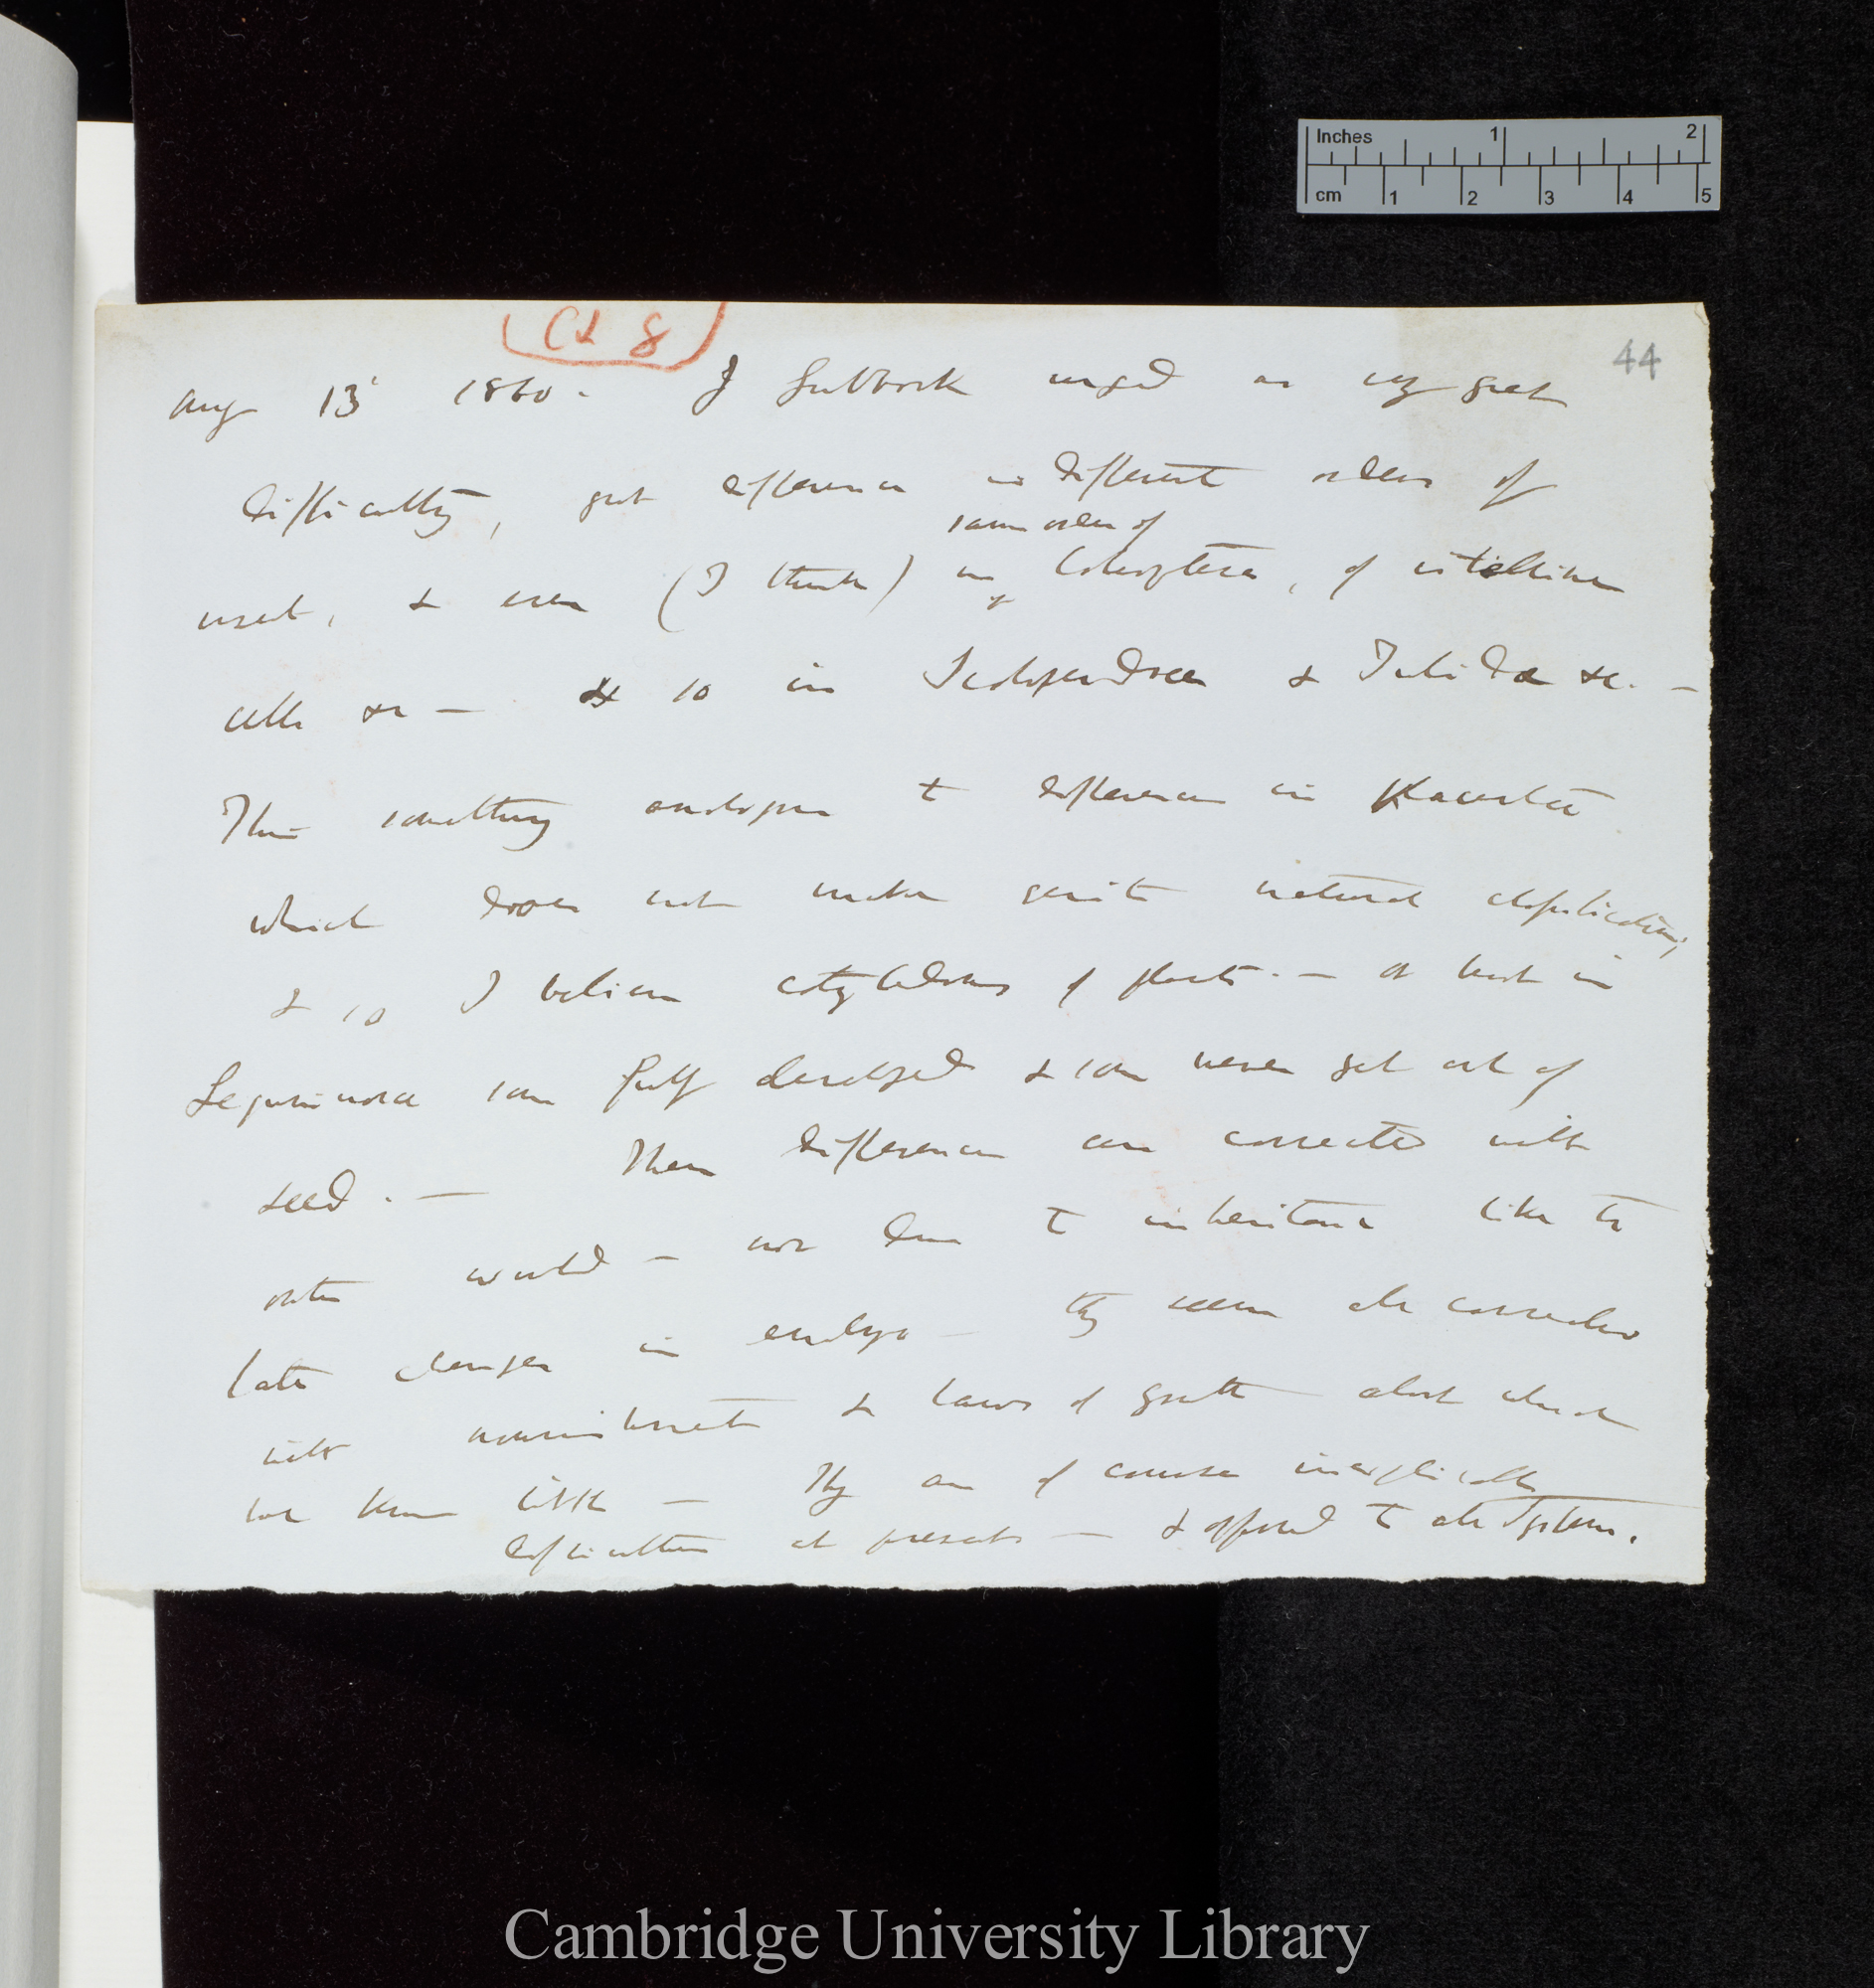 Inches 1 2
cm 1 2 3 4 5
Ch 8
44
Aug 13' 1860. J Lubbock urged as very great
difficulty, great difference in different orders of
same order of
insect, & even (I think) in Coleoptera, of vitelline
cells &c — & so in Scolopendrae & Julidae &c. —
This something analogous to difference in Placenta
which does not make quite natural classification;
& so I believe cotyledons of plants. — at least in
Leguminosae some fully developed & some never get out of
seed. — These differences are connected with
outer world — not due to inheritance like to
late changes in embryo — they seem also connected
with nourishment & laws of growth about which
we know little — They are of course inexplicable
difficulties at present — & opposed to all systems.
Cambridge University Library